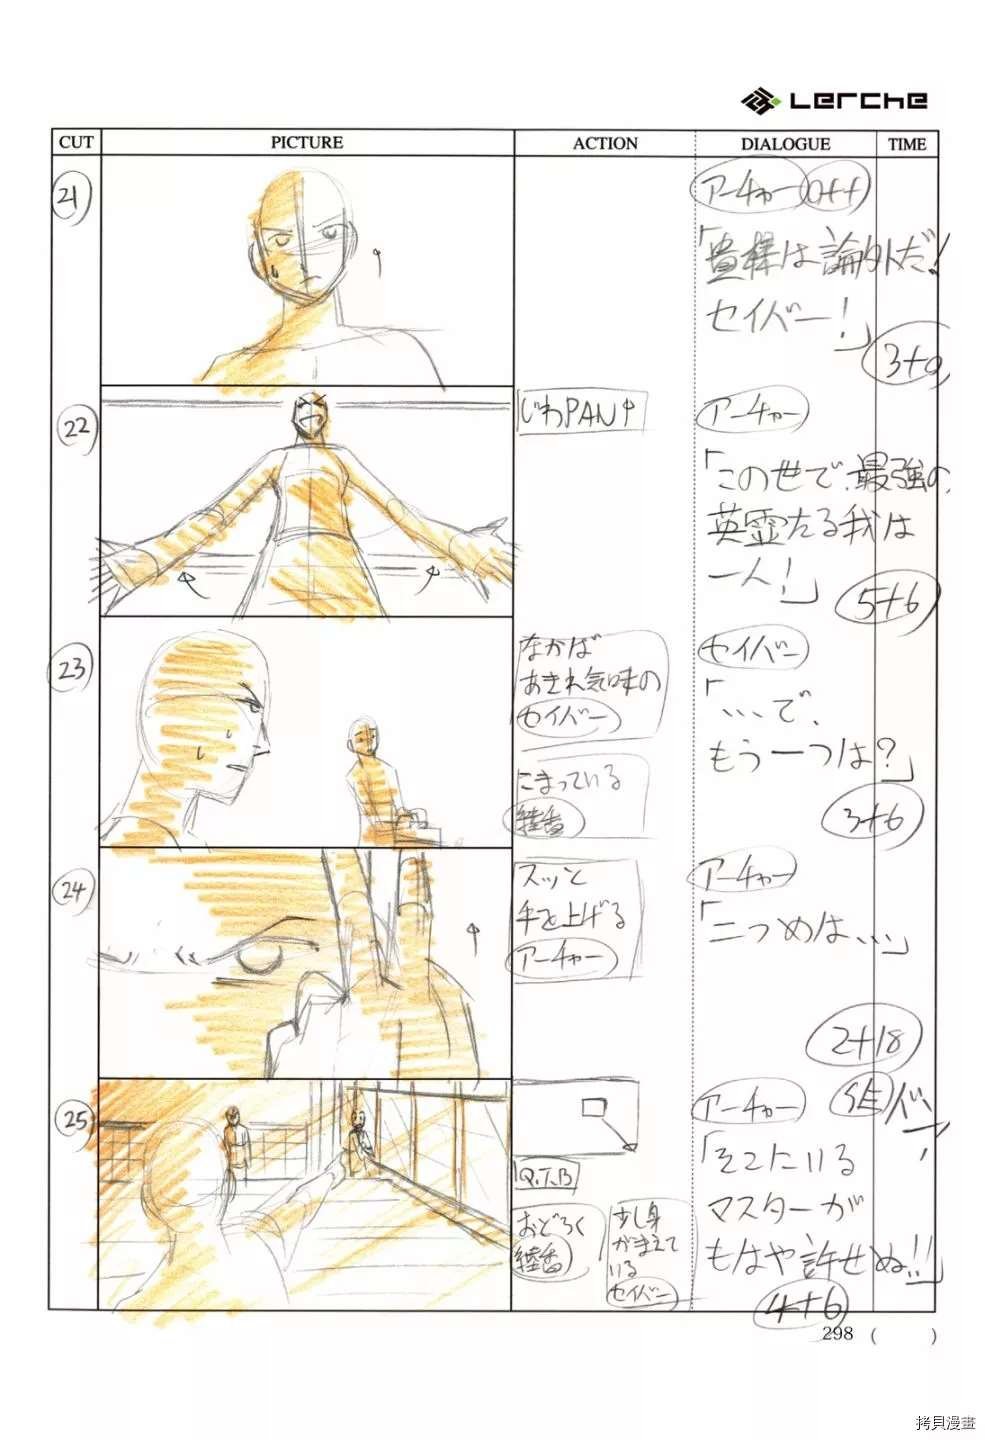 Lerche
CUT PICTURE ACTION DIALOGUE TIME
21
アーチャー off
「貴様は論外だ!
セイバー!」
3+0
22
じわPAN
アーチャー
「この世で、最強の、
英霊たる我は
一人!」
5+6
23
なかば
あきれ気味の
セイバー
こまっている
綾香
セイバー
「、、、で、
もう一つは?」
3+6
24
スッと
手を上げる
アーチャー
アーチャー
「二つめは、、、」
2+18
25
Q.T.B
おどろく
綾香
少し身
がまえて
いる
セイバー
アーチャー
「そこにいる
マスターが
もはや許せぬ!!」
4+6
298 ( )
拷貝漫畫